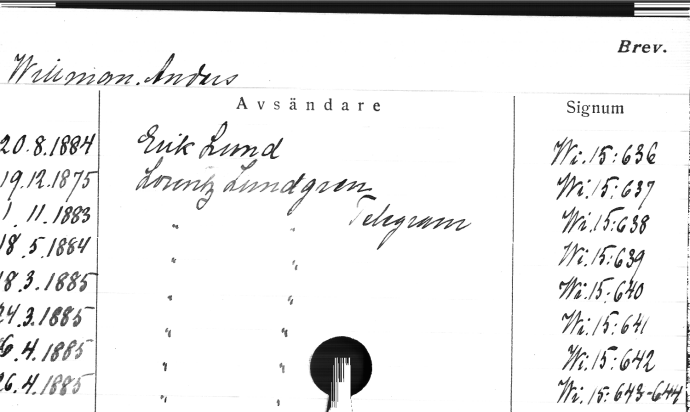 Brev.
Willman. Anders
Avsändare Signum
20.8.1884 Erik Lund Wi.15:636
19.12.1875 Lorentz Lundgren Wi.15:637
1.11.1883 " " Telegram Wi.15:638
18.5.1884 " " Wi.15:639
18.3.1885 " " Wi.15:640
24.3.1885 " " Wi.15:641
6.4.1885 " " Wi.15:642
26.4.1885 " " Wi.15:643-644